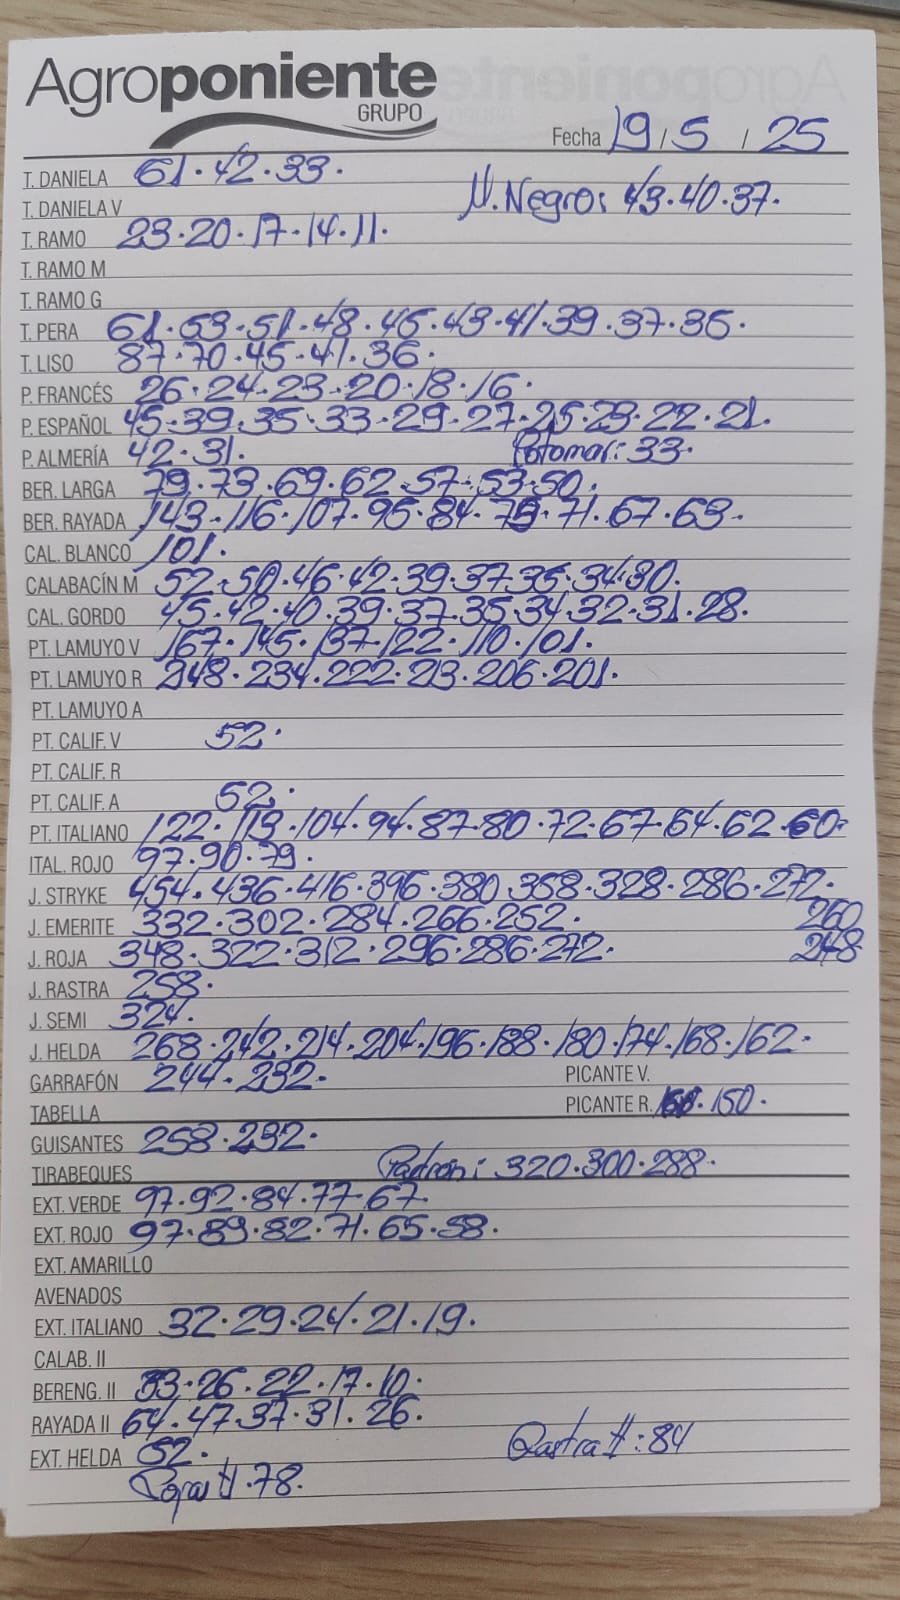 Agroponiente
GRUPO
Fecha 19 / 5 / 25
T. DANIELA 61·42·33·
T. DANIELA V
N. Negro: 43·40·37·
T. RAMO 23·20·17·14·11·
T. RAMO M
T. RAMO G
T. PERA 61·53·51·48·45·43·41·39·37·35·
T. LISO 87·70·45·41·36·
P. FRANCÉS 26·24·23·20·18·16·
P. ESPAÑOL 45·39·35·33·29·27·25·23·22·21·
P. ALMERÍA 42·31· Potomar: 33·
BER. LARGA 79·73·69·62·57·53·50·
BER. RAYADA 143·116·107·95·84·75·71·67·63·
CAL. BLANCO 101·
CALABACÍN M 52·50·46·42·39·37·35·34·30·
CAL. GORDO 45·42·40·39·37·35·34·32·31·28·
PT. LAMUYO V 167·145·137·122·110·101·
PT. LAMUYO R 248·234·222·213·206·201·
PT. LAMUYO A
PT. CALIF. V 52·
PT. CALIF. R
PT. CALIF. A 52·
PT. ITALIANO 122·113·104·94·87·80·72·67·64·62·60·
ITAL. ROJO 97·90·79·
J. STRYKE 454·436·416·396·380·358·328·286·272·
J. EMERITE 332·302·284·266·252· 260
J. ROJA 348·322·312·296·286·272· 248
J. RASTRA 258·
J. SEMI 324·
J. HELDA 268·242·214·204·196·188·180·174·168·162·
GARRAFÓN 244·232· PICANTE V.
TABELLA PICANTE R. 150·
GUISANTES 258·232·
TIRABEQUES Padrón: 320·300·288·
EXT. VERDE 97·92·84·77·67·
EXT. ROJO 97·89·82·71·65·58·
EXT. AMARILLO
AVENADOS
EXT. ITALIANO 32·29·24·21·19·
CALAB. II
BERENG. II 33·26·22·17·10·
RAYADA II 64·47·37·31·26·
EXT. HELDA 52· Rastra II: 84
Roja II·78·